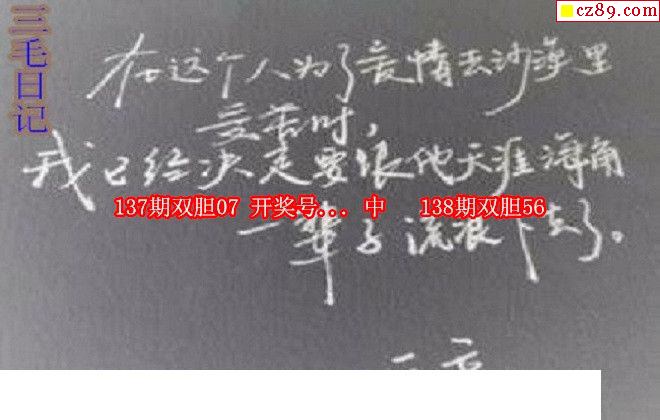 cz89.com
三毛日记
在这个人为了爱情去沙漠里
受苦时，
我已经决定要跟他天涯海角
137期双胆07 开奖号... 中 138期双胆56
一辈子流浪下去了。